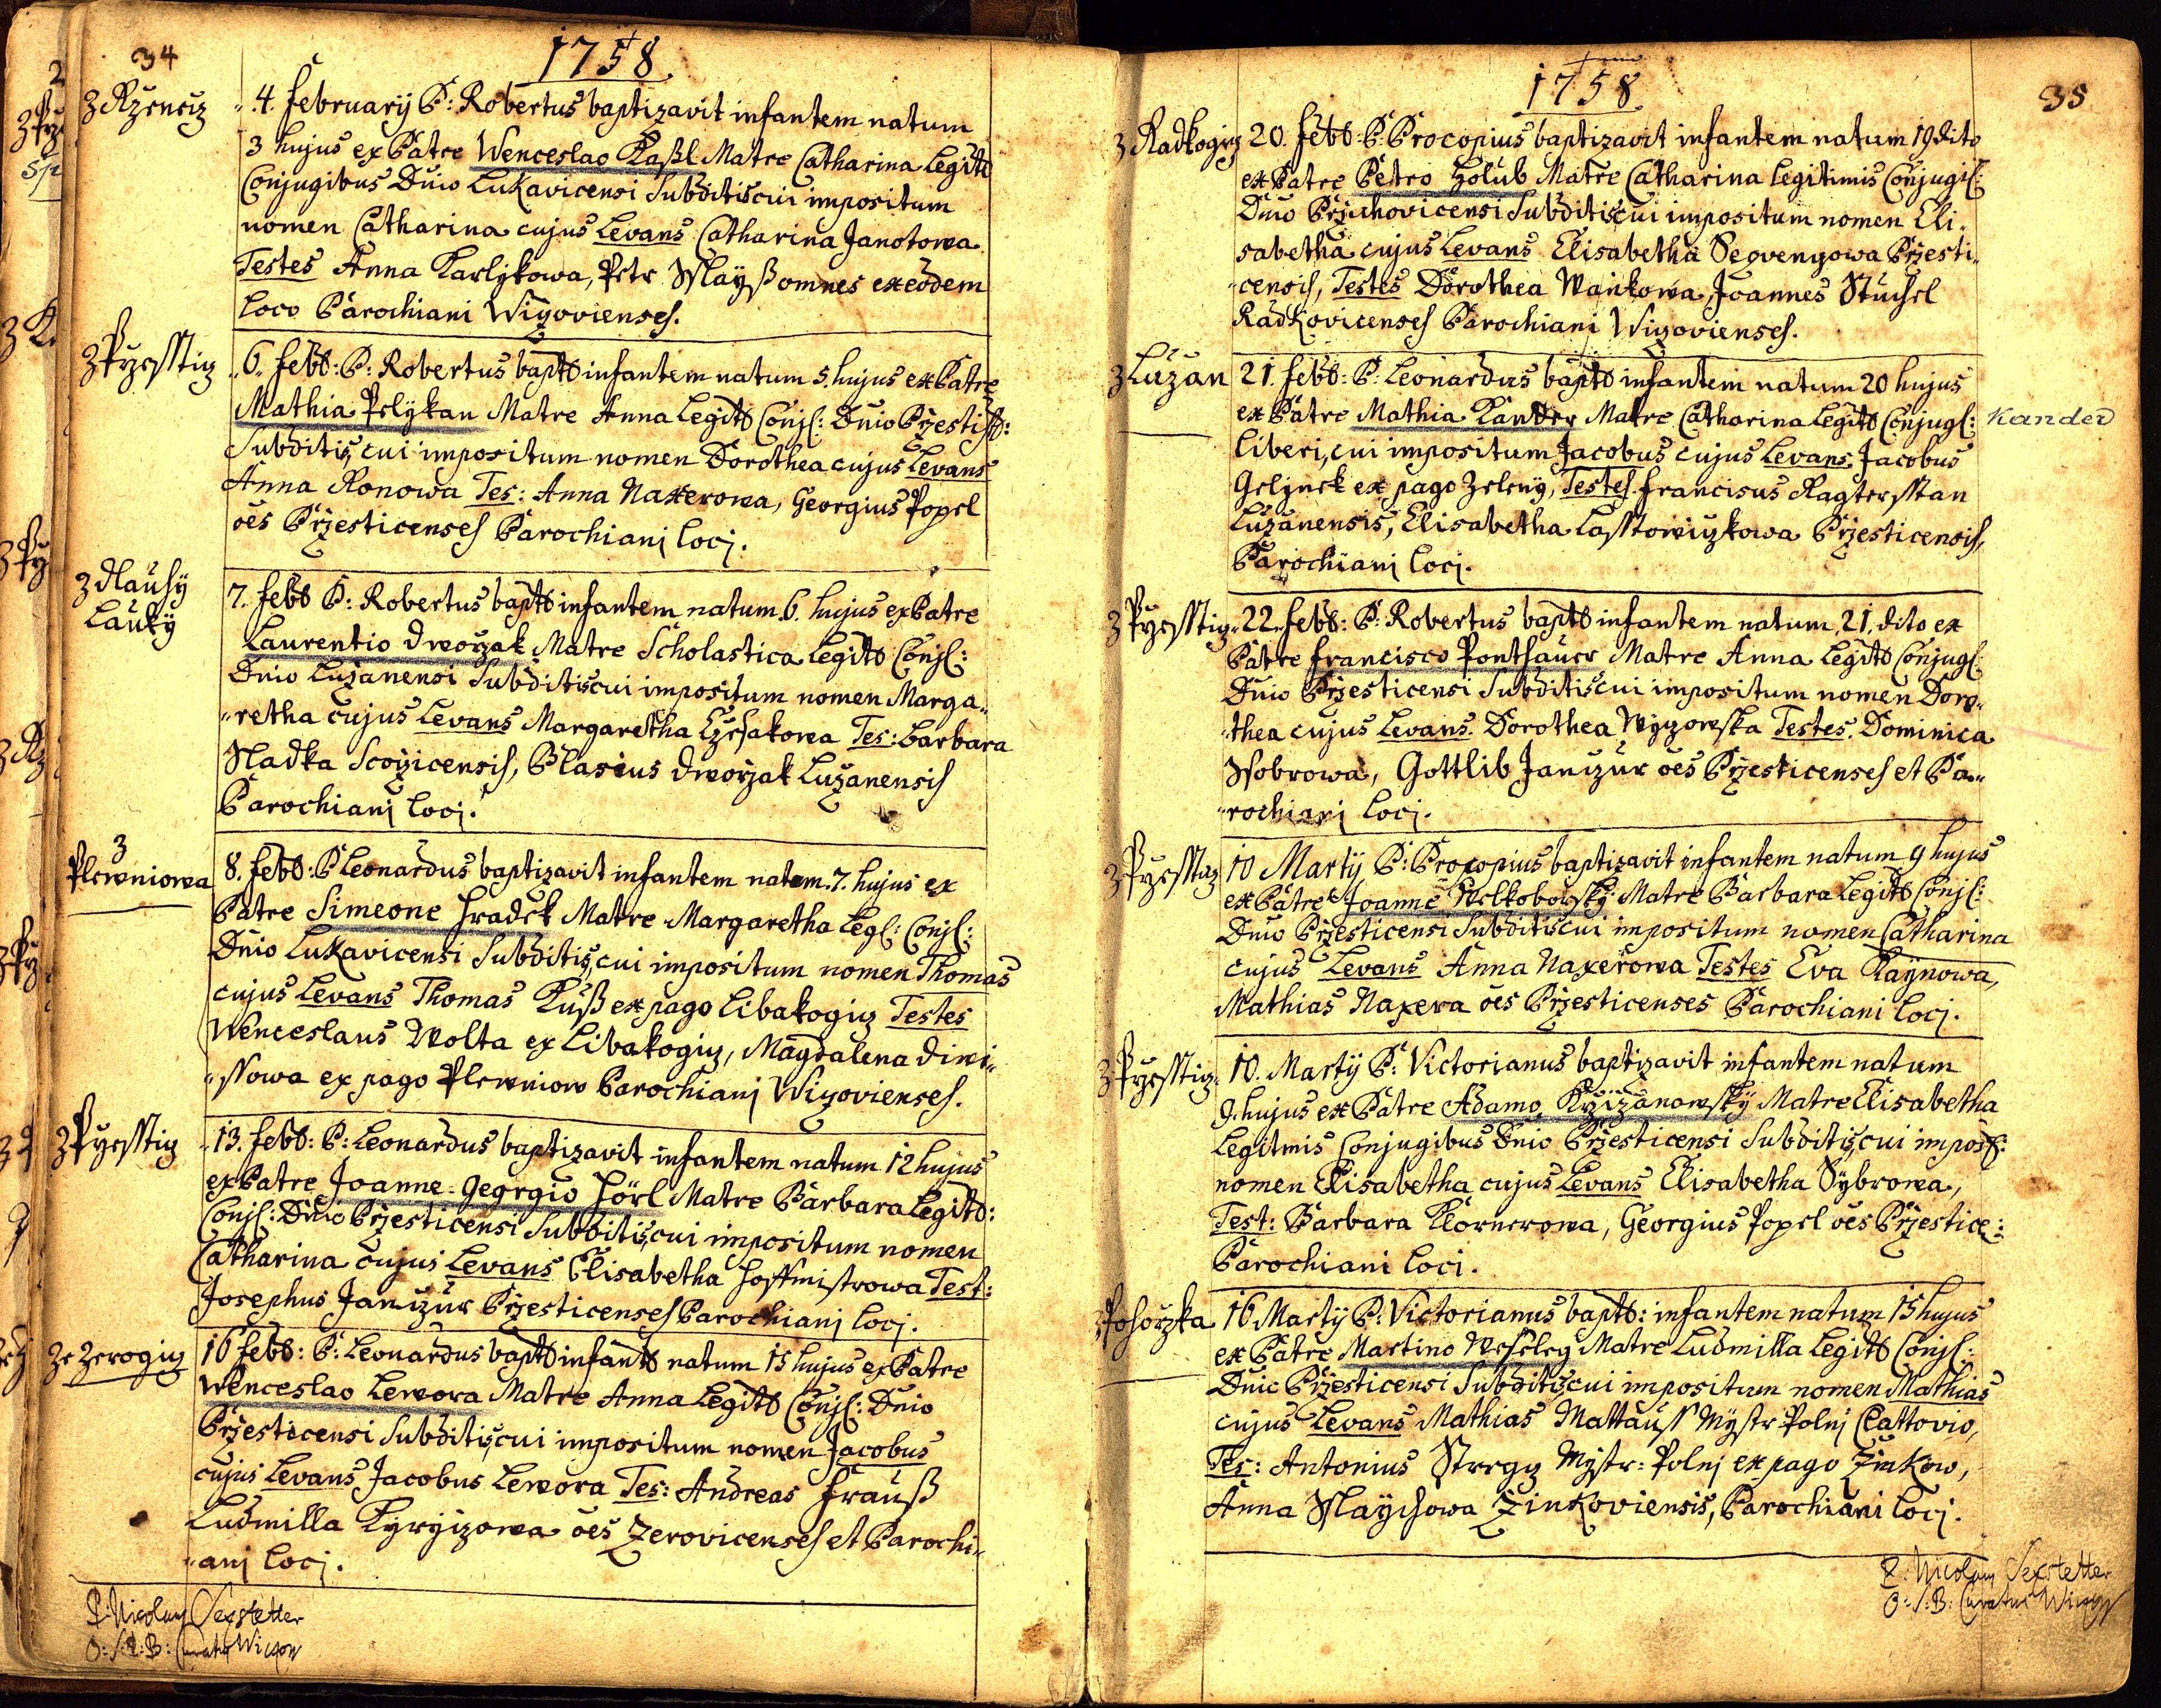 34
1758
z Rzeneiz
4. February P: Robertus baptizavit infantem natum
3 hujus ex Patre Wenceslao Kaßl Matre Catharina Legitb
Conjugibus Dnio Lukavicensi Subditis, cui impositum
nomen Catharina cujus Levans Catharina Janotowa
Testes Anna Karlykowa, Petr Mlayß omnes ex eodem
loco Parochiani Wizovienses.
z Przesstiz
6. Febb: P: Robertus baptb infantem natum 5. hujus ex Patre
Mathia Pelykan Matre Anna Legitb Conjs: Dnio Przestiss:
Subditis, cui impositum nomen Dorothea cujus Levans
Anna Ronowa Tes: Anna Naxerowa, Georgius Popel
oes Przesticenses Parochianj locj.
z dlauhy
Lauky
7. Febb P: Robertus baptb infantem natum 6. hujus ex Patre
Laurentio dworzak Matre Scholastica Legitb Conjs:
Dnio Luzanensi Subditis cui impositum nomen Marga
retha cujus Levans Margaretha Czesakowa Tes: Barbara
Sladka Scozicensis, Blasius dworzak Luzanensis
Parochianj locj.
z
Plewniowa
8. Febb: P Leonardus baptizavit infantem natum 7. hujus ex
Patre Simeone Hradek Matre Margaretha Legs: Conjs:
Dnio Lukavicensi Subditis, cui impositum nomen Thomas
cujus Levans Thomas Kuß ex pago Libakogiz Testes
Wenceslaus Wolta ex Libakogiz, Magdalena diwi
ssowa ex pago Plewniow Parochianj Wizovienses.
z Przesstig
13. Febb: P: Leonardus baptizavit infantem natum 12 hujus
ex Patre Joanne Georgio Hörl Matre Barbara Legitb:
Conjs: Dnio Przesticensi Subditis, cui impositum nomen
Catharina cujus Levans Elisabetha Hoffmistrowa Test:
Josephus Janizur Przesticenses Parochianj locj.
ze Zerogiz
16 Febb: P: Leonardus baptb infantb natum 15 hujus ex Patre
Wenceslao Lewora Matre Anna Legitb Conjs: Dnio
Przesticensi Subditis, cui impositum nomen Jacobus
cujus Levans Jacobus Lewora Tes: Andreas Krauß
Ludmilla Kyryizowa oes Zerovicenses et Parochi
anj locj.
P. Nicolaus Sexstetter
O: S: P: B: Curatus Wiczow
35
1758
z Radkogiz
20. Febb: P: Procopius baptizavit infantem natum 19 dito
ex Patre Petro Holub Matre Catharina Legitimis Conjugis:
Dnio Przichovicensi Subditis cui impositum nomen Eli
sabetha cujus Levans Elisabetha Segvengowa Przesti
censis, Testes Dorothea Wankowa, Joannes Stuchel
Radkovicenses Parochianj Wizovienses.
z Luzan
21. Febb: P: Leonardus baptb infantem natum 20 hujus
ex Patre Mathia Kander Matre Catharina Legitb Conjugs:
Kander
liberi, cui impositum Jacobus cujus Levans Jacobus
Gelinek ex pago Zeleny, Testes Francisus Ragtersstan
Luzanensis, Elisabetha Lasstowizkowa Przesticensis,
Parochianj locj.
z Przesstig
22. Febb: P: Robertus baptb infantem natum 21. dito ex
Patre Francisco Ponthauer Matre Anna Legitb Conjugs:
Dnio Przesticensi Subditis cui impositum nomen Doro
thea cujus Levans Dorothea Wyzowska Testes Dominica
Wobrowa, Gottlib Janizur oes Przesticenses et Pa
rochianj locj.
z Przesstig
10 Marty P: Procopius baptizavit infantem natum 9 hujus
ex Patre Joanne Welkoborsky Matre Barbara Legitb Conjs:
Dnio Przesticensi Subditis cui impositum nomen Catharina
cujus Levans Anna Naxerowa Testes Eva Kaynowa,
Mathias Naxera oes Przesticenses Parochiani locj.
z Przesstig
10. Marty P: Victorianus baptizavit infantem natum
9. hujus ex Patre Adamo Krzizanowsky Matre Elisabetha
Legitmis Conjugibus Dnio Przesticensi Subditis, cui imposs:
nomen Elisabetha cujus Levans Elisabetha Sybrowa,
Test: Barbara Klornerowa, Georgius Popel oes Przestice:
Parochiani loci.
z Pohorzka
16 Marty P: Victorianus baptb: infantem natum 15 hujus
ex Patre Martino Weseley Matre Ludmilla Legitb Conjs:
Dnio Przesticensi Subditis cui impositum nomen Mathias
cujus Levans Mathias Mattauss Mystr Polnj Clattovio,
Tes: Antonius Stregz Mystr: Polnj ex pago Zinkow,
Anna Maychowa Zinkoviensis, Parochiani locj.
P: Nicolaus Sexstetter
O: S: B: Curatus Wiczow